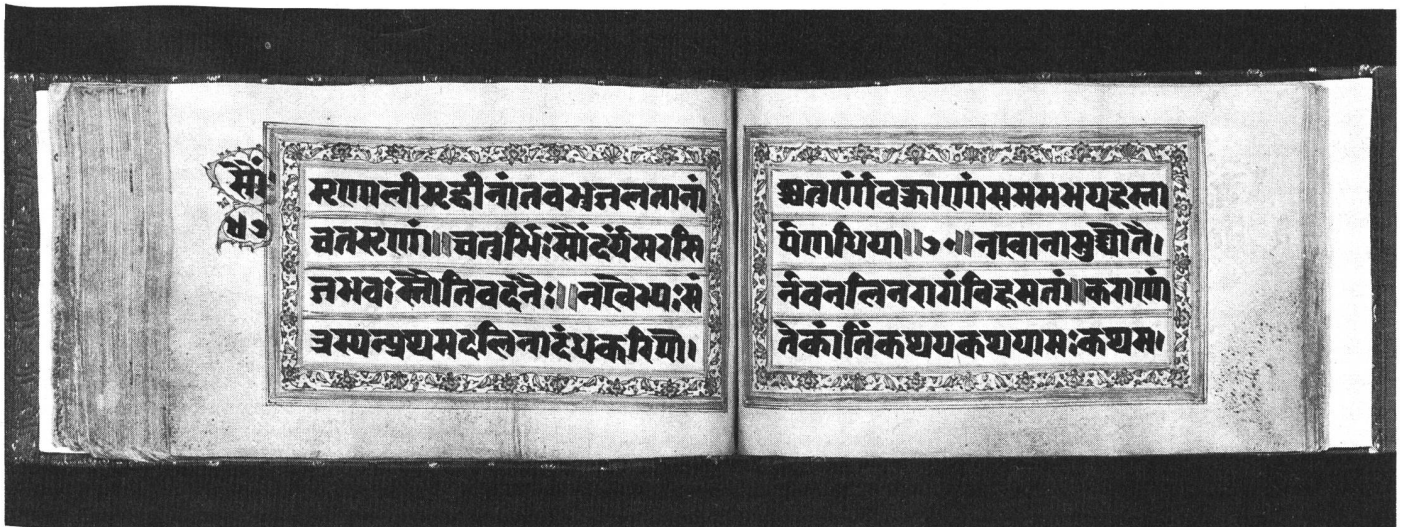 सौं
मृणालीमृद्वीनांतवभुजलतानां
चतसृणां॥चतुर्भिःसौंदर्यंसरसि
जभवःस्तौतिवदनैः॥नखेभ्यःसं
त्रस्यन्प्रथमदलिनादंधकरिपो।
श्चतुर्णांवक्त्राणांसममभयहस्ता
र्पणधिया॥७०॥नखानामुद्योतै।
र्नवनलिनरागंविहसतां॥कराणां
तेकांतिंकथयकथयामःकथम।